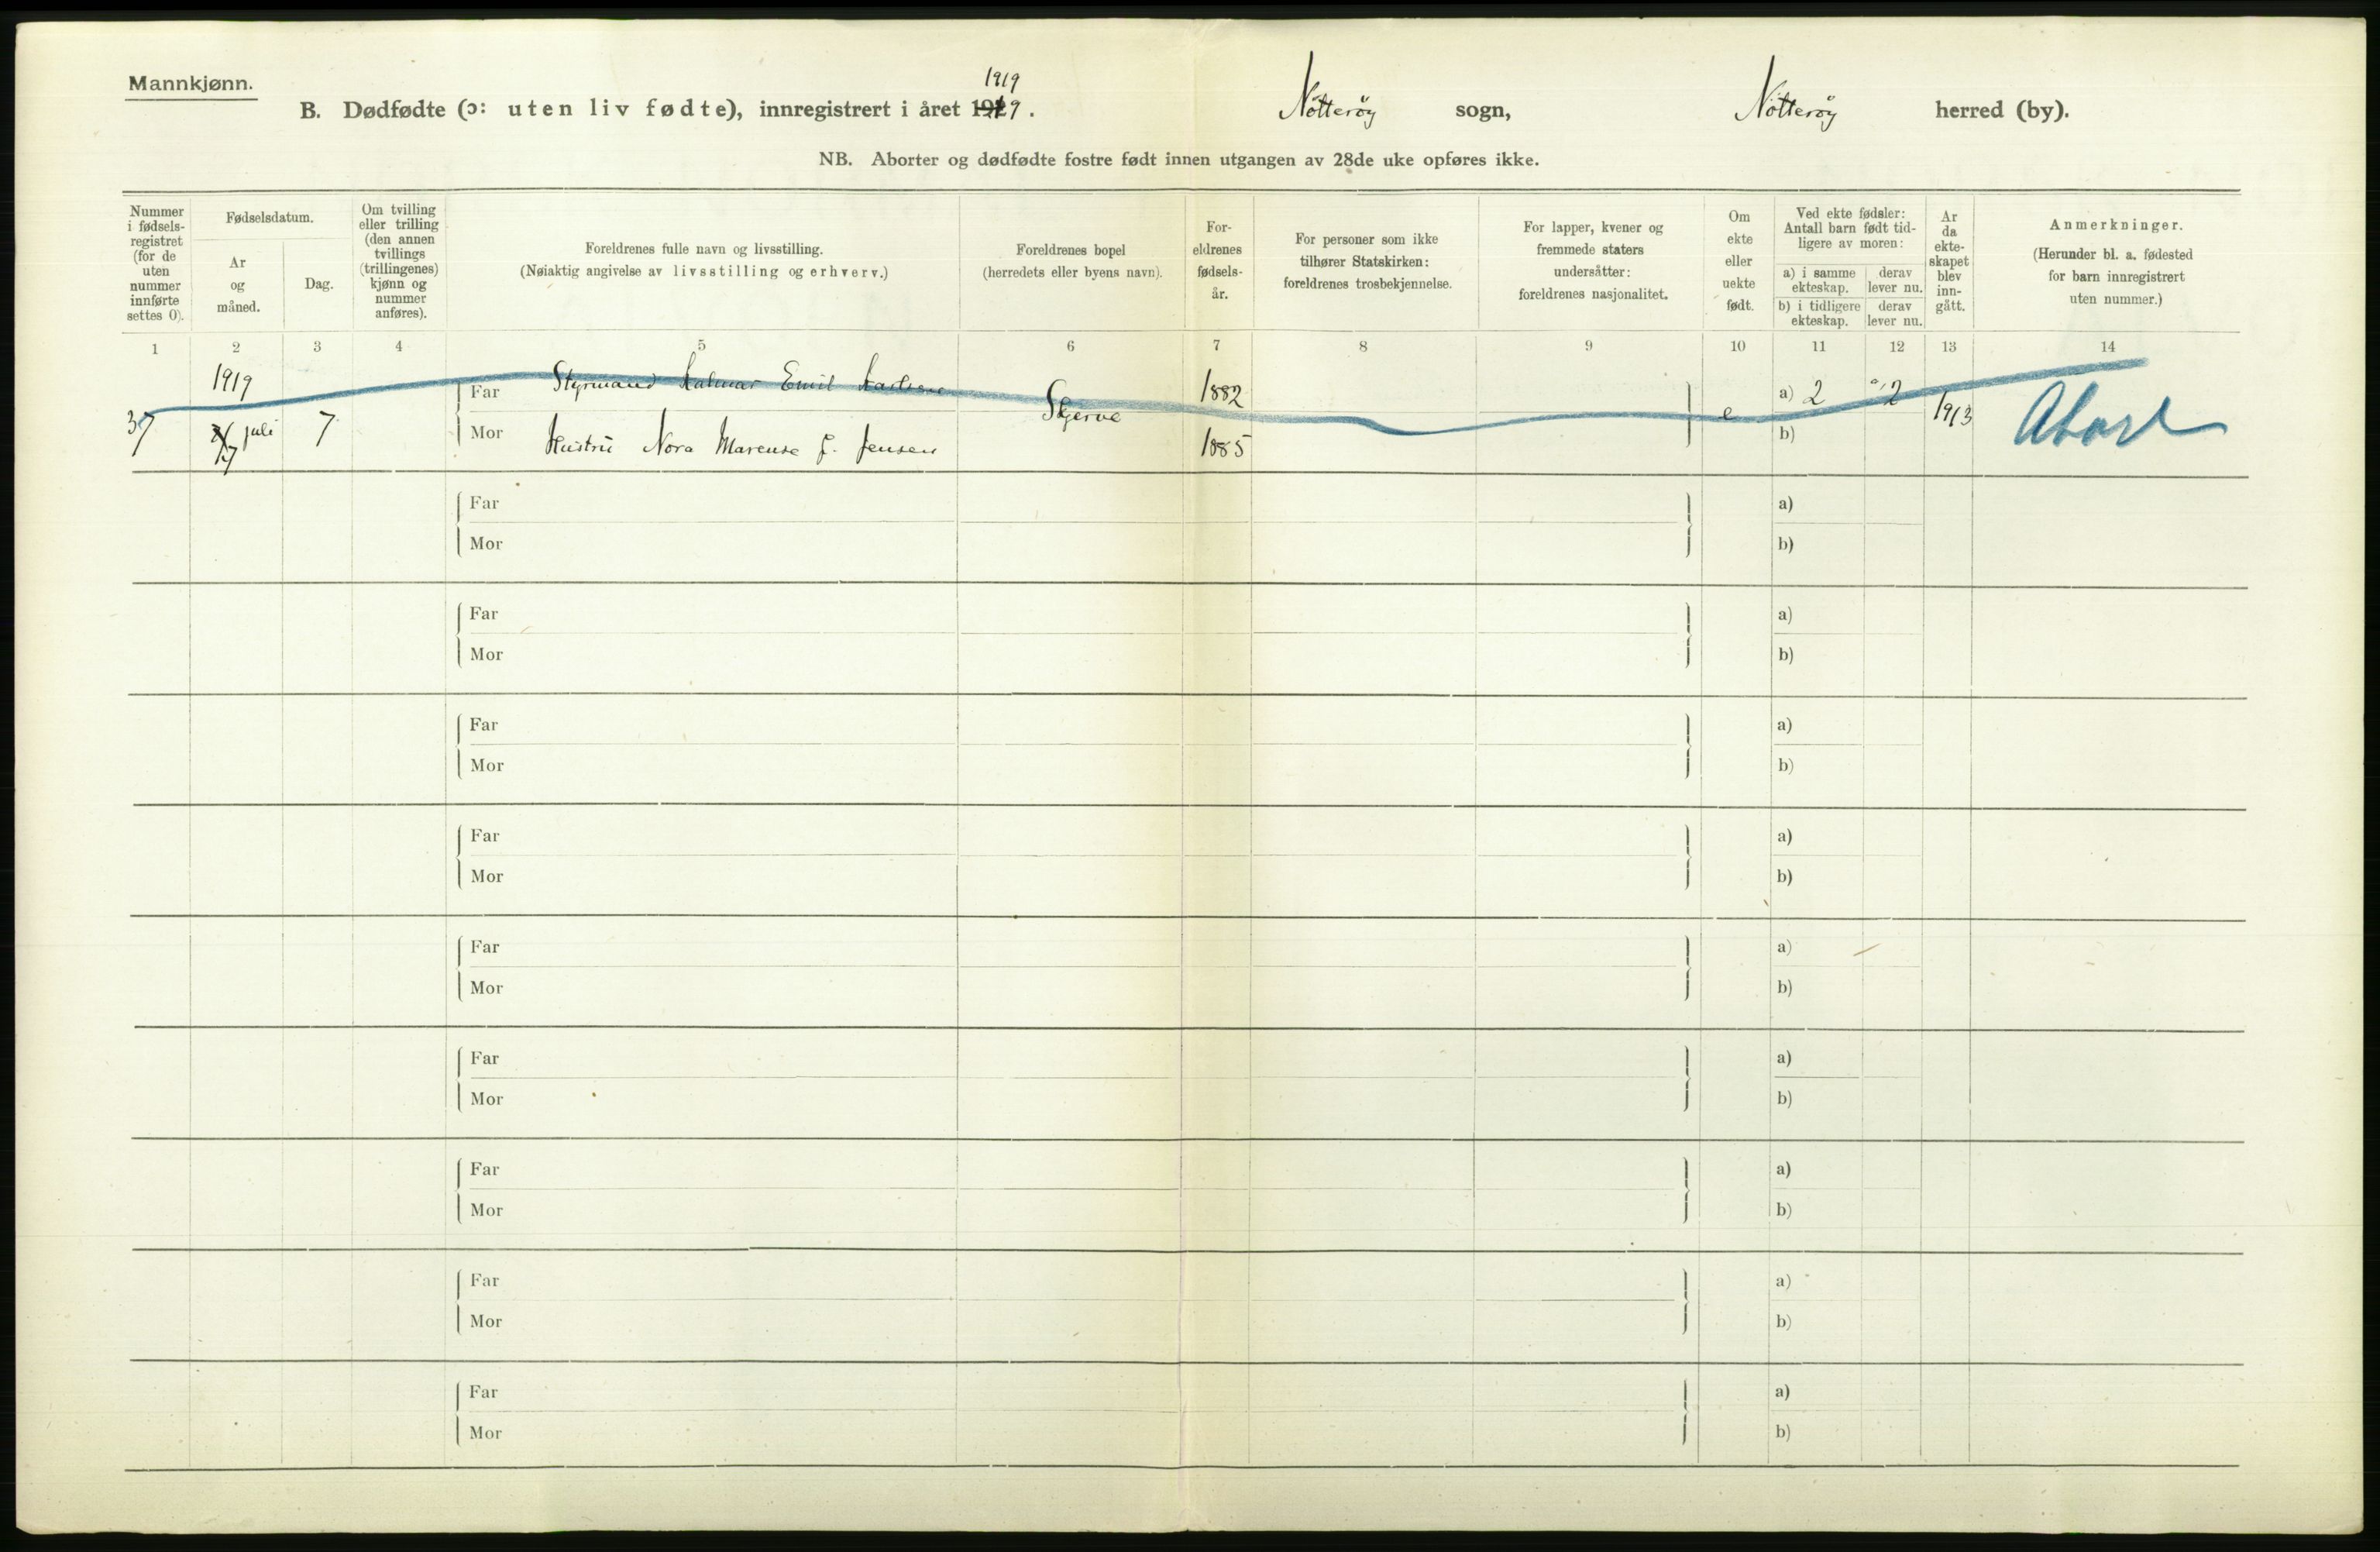 Mannkjønn.
B. Dødfødte (ɔ: uten liv fødte), innregistrert i året 1919. Nötteröy sogn, Nötteröy herred (by).
NB. Aborter og dødfødte fostre født innen utgangen av 28de uke opføres ikke.
Nummer i fødsels-registret (for de uten nummer innførte settes 0).
Fødselsdatum.
Ar og måned.
Dag.
Om tvilling eller trilling (den annen tvillings (trillingenes) kjønn og nummer anføres).
Foreldrenes fulle navn og livsstilling.
(Nøiaktig angivelse av livsstilling og erhverv.)
Foreldrenes bopel
(herredets eller byens navn).
For-eldrenes fødsels-år.
For personer som ikke tilhører Statskirken: foreldrenes trosbekjennelse.
For lapper, kvener og fremmede staters undersåtter: foreldrenes nasjonalitet.
Om ekte eller uekte født.
Ved ekte fødsler: Antall barn født tid-ligere av moren:
a) i samme ekteskap. derav lever nu.
b) i tidligere ekteskap. derav lever nu.
Ar da ekte-skapet blev inn-gått.
Anmerkninger.
(Herunder bl. a. fødested for barn innregistrert uten nummer.)
1 2 3 4 5 6 7 8 9 10 11 12 13 14
1919 Far Styrmand Emil 1882 a) 2 a) 2
37 juli 7 Skjerve e 1913 Abort
Mor Hustru Nora Marense f. Jensen 1885 b)
Far a)
Mor b)
Far a)
Mor b)
Far a)
Mor b)
Far a)
Mor b)
Far a)
Mor b)
Far a)
Mor b)
Far a)
Mor b)
Far a)
Mor b)
Far a)
Mor b)